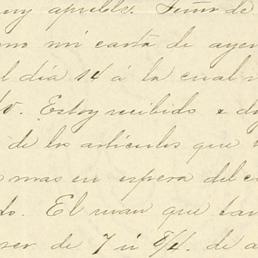 muy apreble. Señor de
mo mi carta de ayer
l día 14 á la cual
do. Estoy recibido
de los artículos que
mas en espera del
do. El man que
de 7 ú 8/4. de